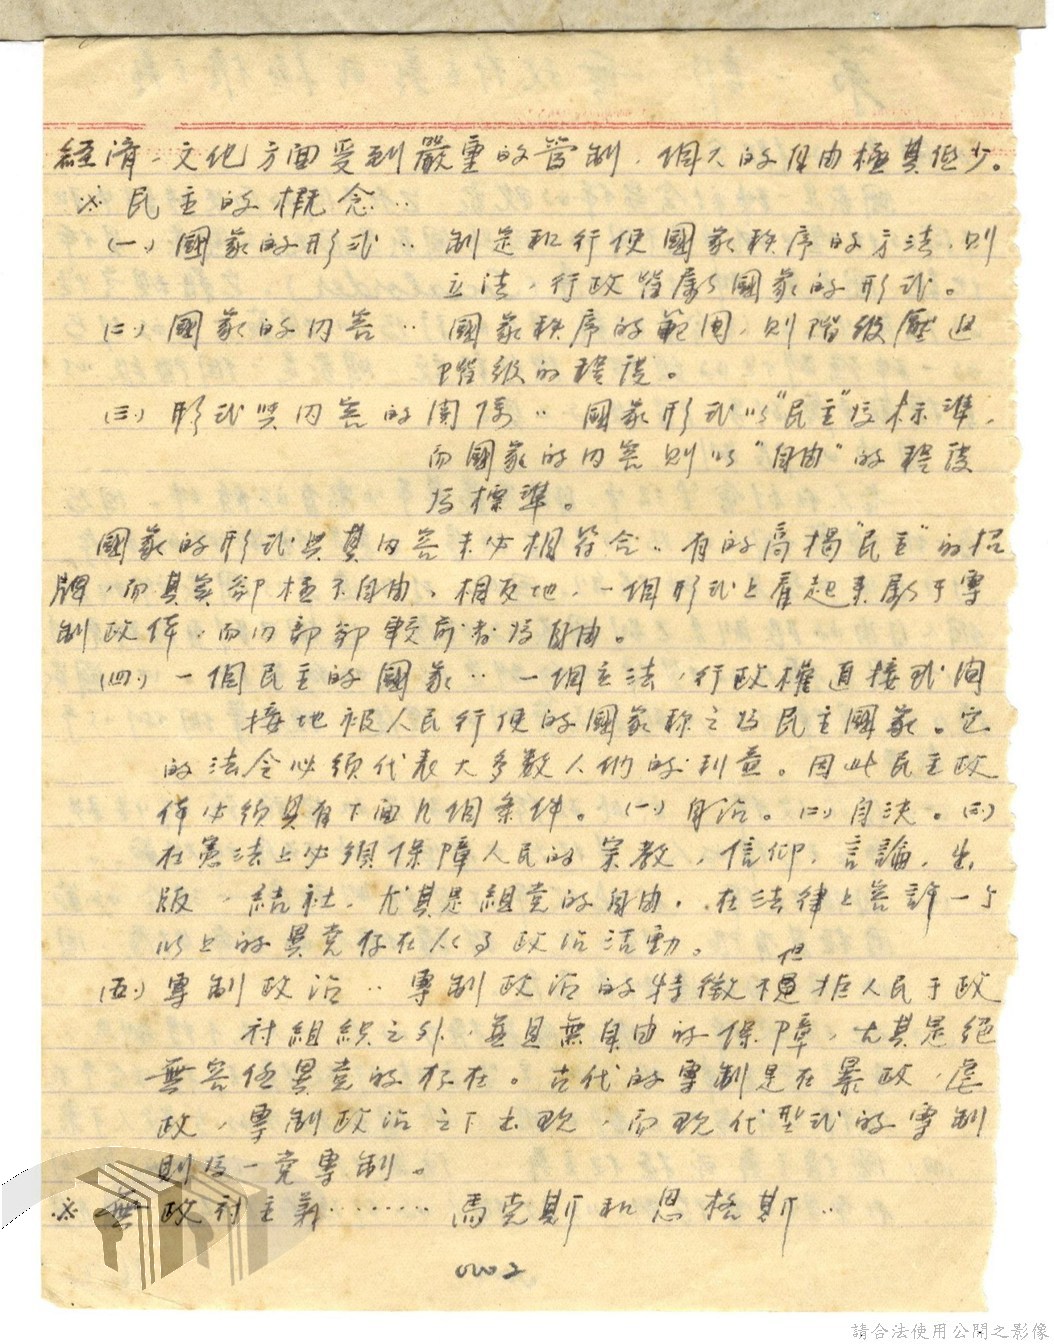 經濟、文化方面受到嚴重的管制,個人的自由極其低少。
※民主的概念‥
(一)國家的形式‥ 制定和行使國家秩序的方法,則
立法,行政皆屬國家的形式。
(二)國家的內容‥ 國家秩序的範圍,則階級壓迫
階級的程度。
(三)形式與內容的關係‥ 國家形式以"民主"為标準,
而國家的內容則以"自由"的程度
為標準。
國家的形式與其內容未必相符合。有的高揭"民主"的招
牌,而其實卻極不自由。相反地,一個形式上看起來屬于專
制政体,而內部卻較前者為自由。
(四)一個民主的國家‥ 一個立法,行政權直接或間
接地被人民行使的國家称之為民主國家。它
的法令必須代表大多數人們的利益。因此民主政
体必須具有下面几個条件。(一)自治。(二)自决。(三)
在憲法上必須保障人民的宗教,信仰,言論,出
版,結社,尤其是組党的自由。在法律上容許一个
以上的異党存在从事政治活動。
(五)專制政治‥ 專制政治的特徵不但拒人民于政
府組織之外,並且無自由的保障,尤其是絕
無容任異党的存在。古代的專制是在暴政,虐
政,專制政治之下出現,而現代型式的專制
則為一党專制。
※無政府主義‥‥‥‥ 馬克斯和恩格斯‥
0002
請合法使用公開之影像